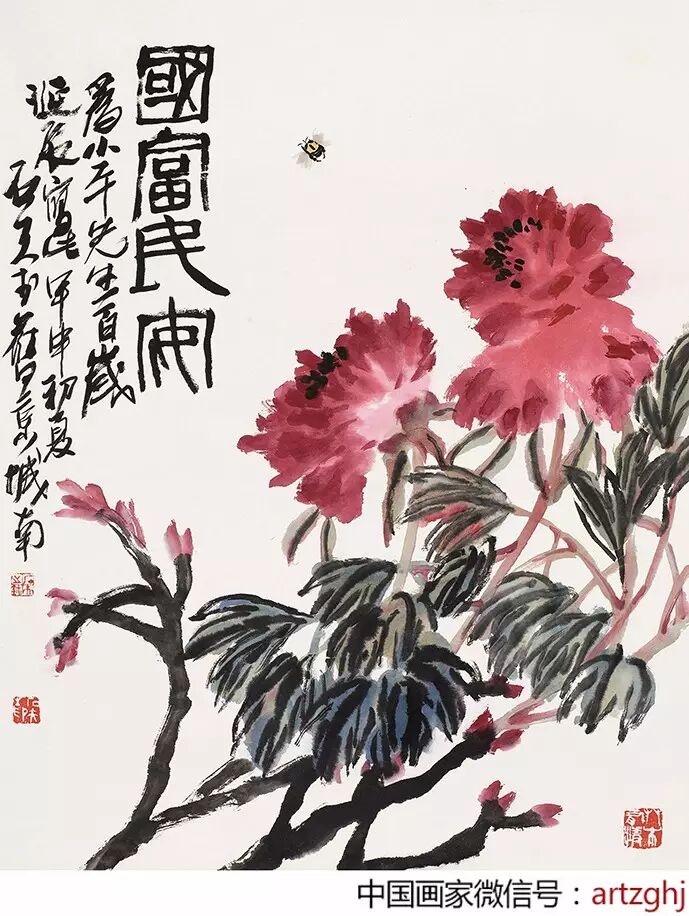 國富民安
為小平先生百歲
誕辰寫 甲申初夏
石 於舊京城南
中国画家微信号：artzghj